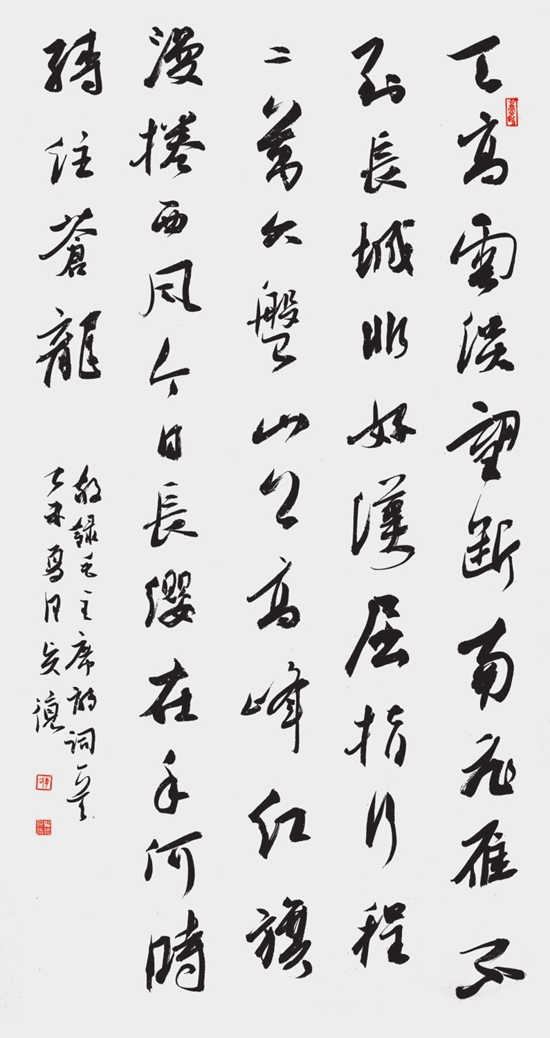 天高雲淡望斷南飛雁不
到長城非好漢屈指行程
二萬六盤山上高峰红旗
漫捲西風今日長纓在手何時
縛住蒼龍
敬録毛主席詩詞一首
乙未夏月吴